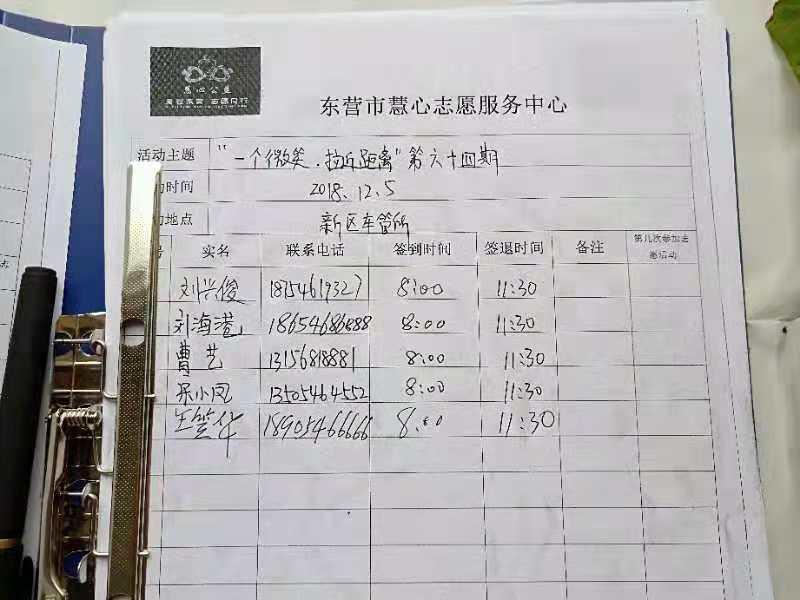 慧心公益
东营市慧心志愿服务中心
活动主题 “一个微笑．拉近距离”第六十四期
动时间 2018.12.5
动地点 新区车管所
号 实名 联系电话 签到时间 签退时间 备注 第几次参加志愿活动
刘兴俊 18754619327 8:00 11:30
刘海港 18654686888 8:00 11:30
曹艺 13156818881 8:00 11:30
小凤 13505464552 8:00 11:30
王 华 18905466666 8:00 11:30